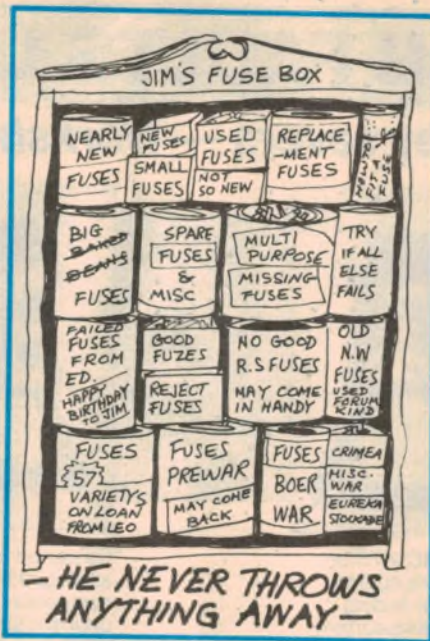 JIM'S FUSE BOX
NEARLY
NEW
FUSES
NEW
FUSES
SMALL
FUSES
USED
FUSES
NOT
SO NEW
REPLACE
-MENT
FUSES
HOW TO
FIT A
FUSE
BIG
BAKED
BEANS
FUSES
SPARE
FUSES
&
MISC
MULTI
PURPOSE
MISSING
FUSES
TRY
IF ALL
ELSE
FAILS
FAILED
FUSES
FROM
ED.
HAPPY
BIRTHDAY
TO JIM
GOOD
FUZES
REJECT
FUSES
NO GOOD
R.S FUSES
MAY COME
IN HANDY
OLD
N.W
FUSES
USED
FORUM
KIND
FUSES
57
VARIETYS
ON LOAN
FROM LEO
FUSES
PREWAR
MAY COME
BACK
FUSES
BOER
WAR
CRIMEA
MISC.
WAR
EUREKA
STOCKADE
— HE NEVER THROWS
ANYTHING AWAY —